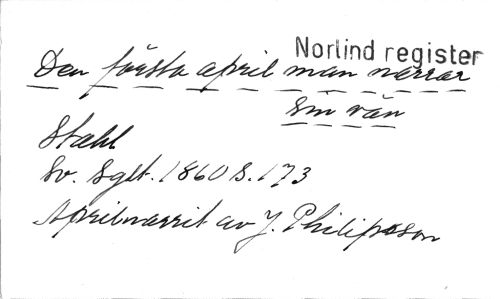 Norlind register
Den första april man narrar
sin vän
Stahl
Sv. Sglt. 1860 S. 173
Aprilnarrit av J. Philipsson